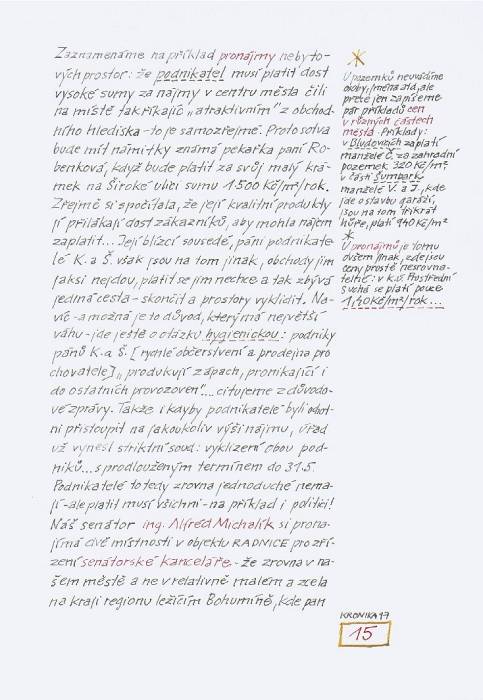 Zaznamenáme na příklad pronájmy nebyto-
vých prostor: že podnikatel musí platit dost
vysoké sumy za nájmy v centru města čili
na místě takříkajíc „atraktivním" z obchod-
ního hlediska - to je samozřejmé. Proto sotva
bude mít námitky známá pekařka paní Ro-
benková, když bude platit za svůj malý krá-
mek na Široké ulici sumu 1.500 Kč/m²/rok.
Zřejmě si spočítala, že její kvalitní produkty
jí přilákají dost zákazníků, aby mohla nájem
zaplatit... Její blízcí sousedé, páni podnikate-
lé K. a Š. však jsou na tom jinak, obchody jim
jaksi nejdou, platit se jim nechce a tak zbývá
jediná cesta - skončit a prostory vyklidit. Na-
víc - a možná je to důvod, který má největší
váhu - jde ještě o otázku hygienickou: podniky
pánů K. a Š. [rychlé občerstvení a prodejna pro
chovatele] „produkují zápach, pronikající i
do ostatních provozoven"... citujeme z důvodo-
vé zprávy. Takže i kdyby podnikatelé byli ochot-
ni přistoupit na jakoukoliv výši nájmu, úřad
už vynesl striktní soud: vyklizení obou pod-
niků... s prodlouženým termínem do 31.5.
Podnikatelé to tedy zrovna jednoduché nema-
jí - ale platit musí všichni - na příklad i politici!
Náš senátor ing. Alfréd Michalík si prona-
jímá dvě místnosti v objektu RADNICE pro zří-
zení senátorské kanceláře - že zrovna v na-
šem městě a ne v relativně malém a zcela
na kraji regionu ležícím Bohumíně, kde pan
U pozemků neuvádíme
osoby, jména atd, ale
přece jen zapíšeme
pár příkladů cen
v různých částech
města. Příklady:
v Bludovicích zaplatí
manželé Č. za zahradní
pozemek 320 Kč/m²,
v části Šumbark
manželé V. a J., kde
jde o stavbu garáží,
jsou na tom třikrát
hůře, platí 940 Kč/m²
U pronájmů je tomu
ovšem jinak, zde jsou
ceny prostě nesrovna-
telné: v k.ú. Prostřední
Suchá se platí pouze
1,40 Kč/m²/rok...
KRONIKA 97
15